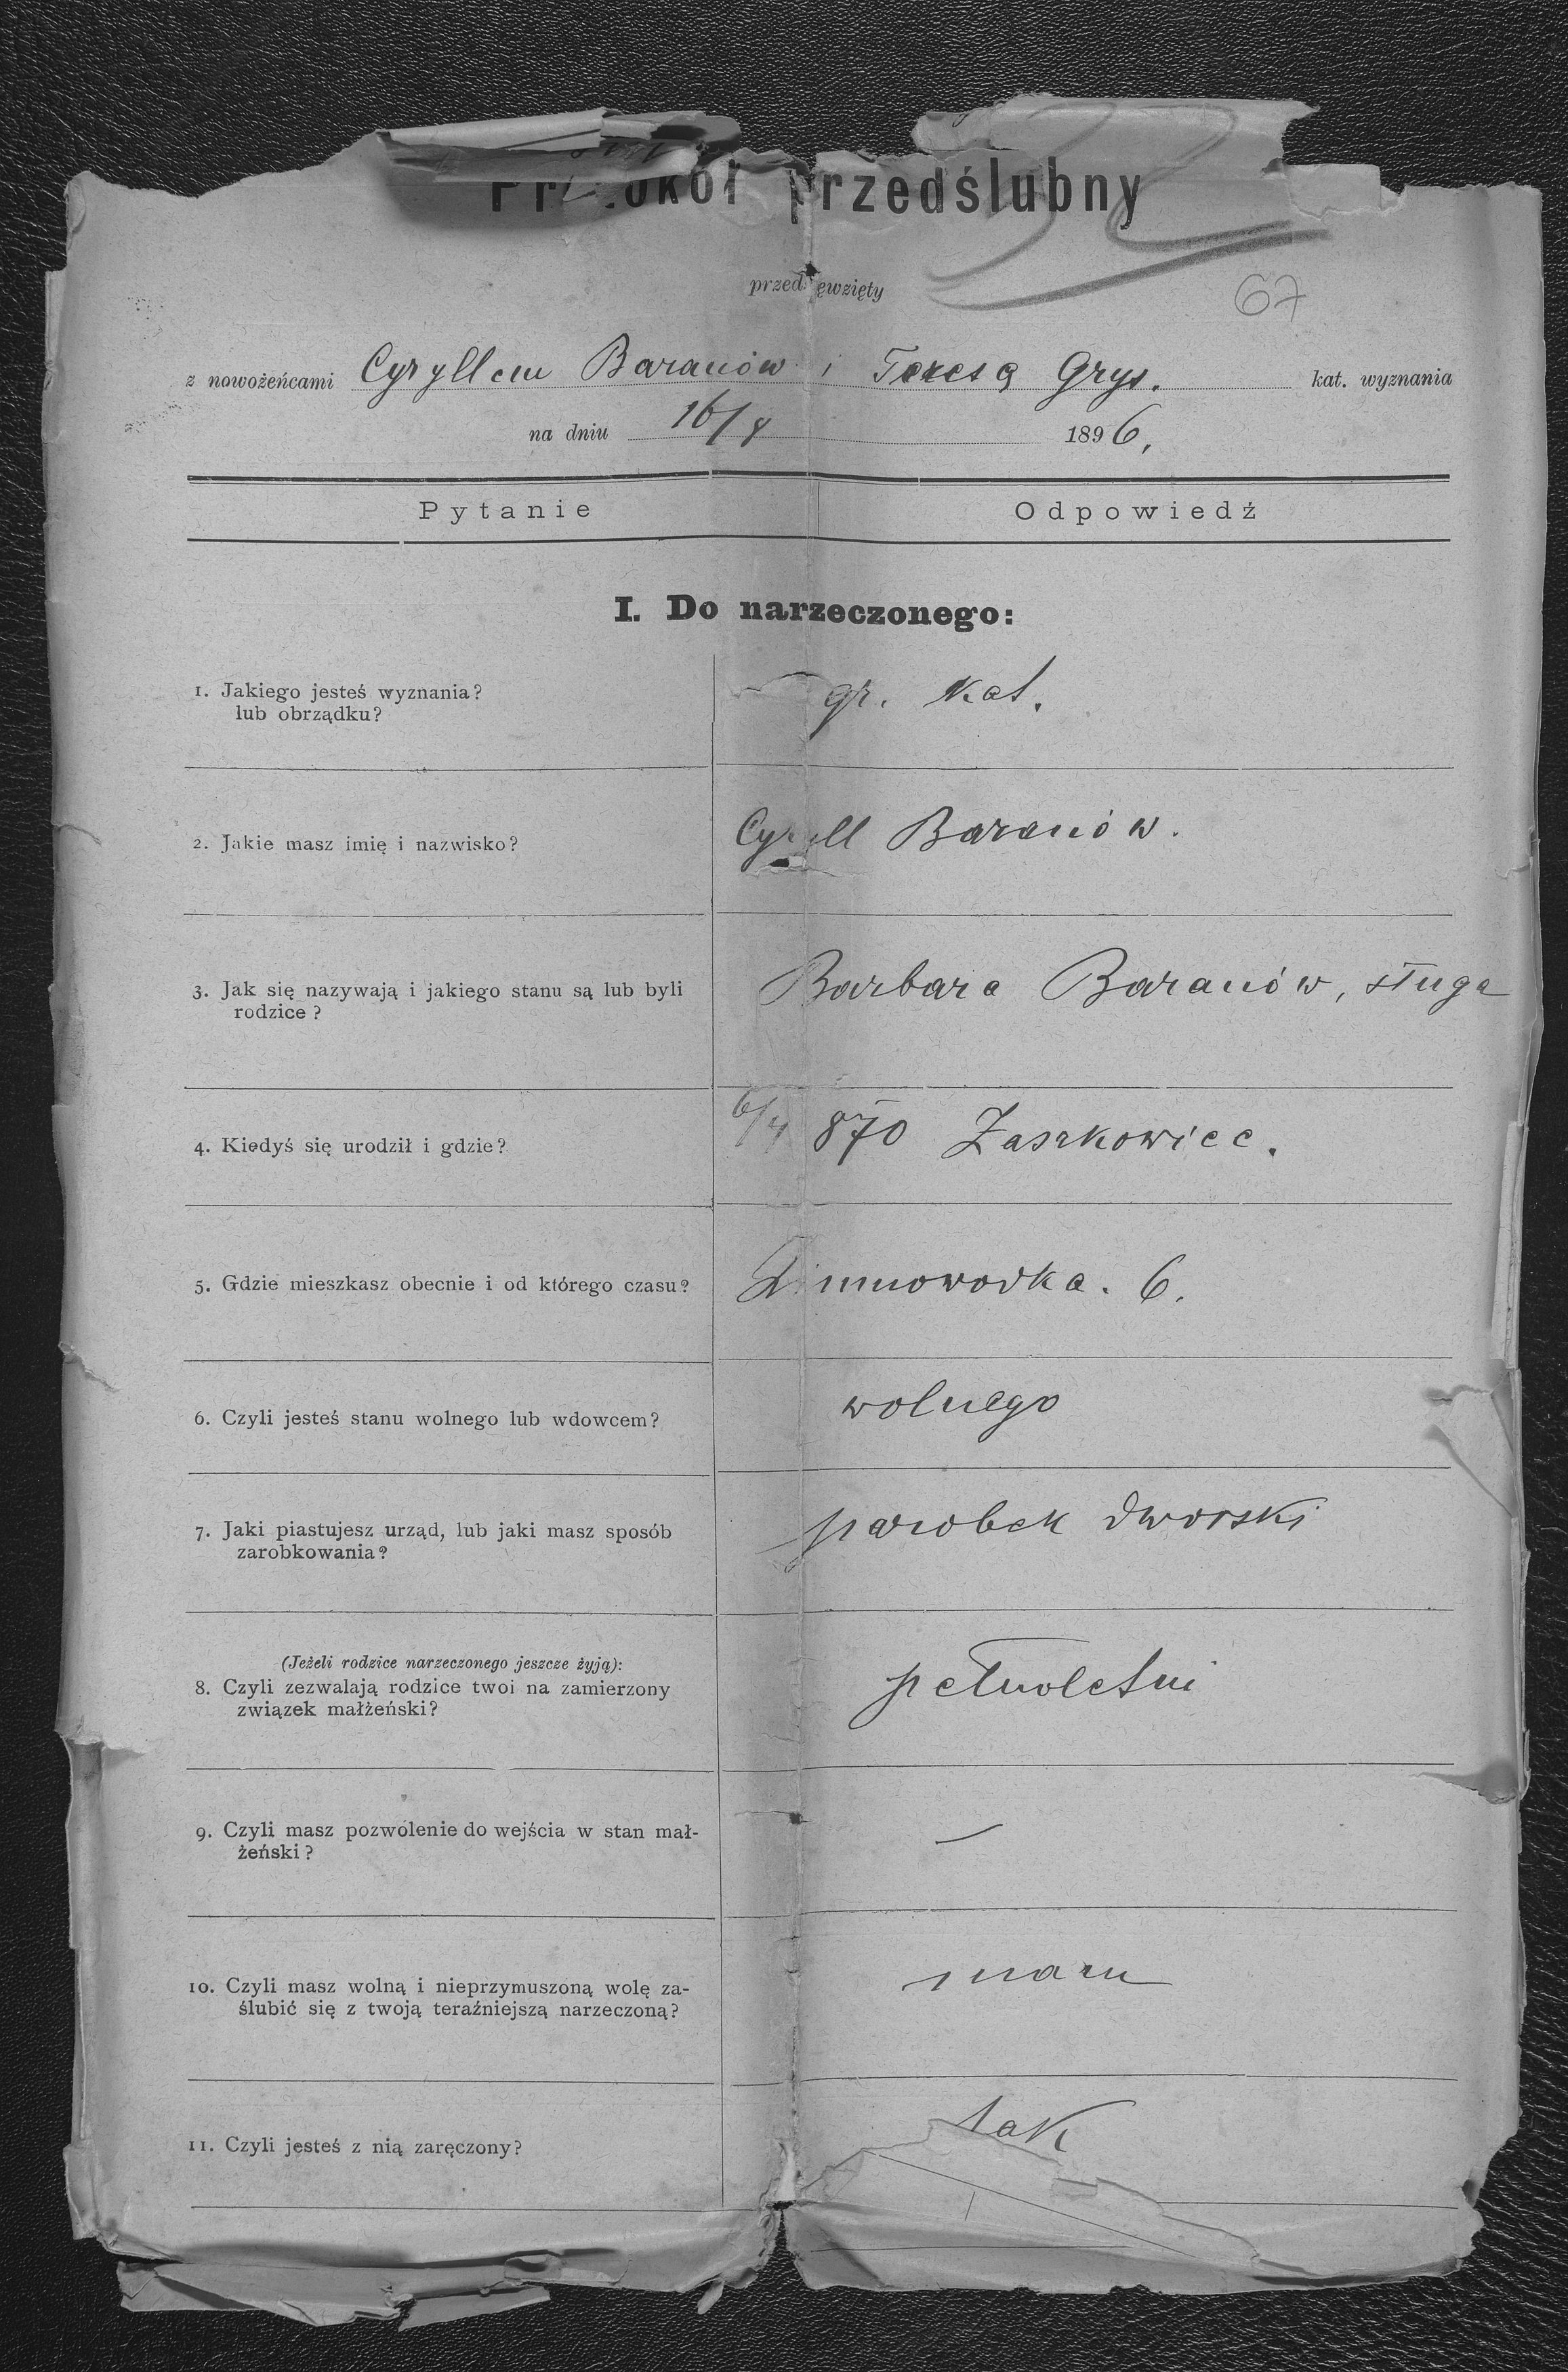 Protokół przedślubny
67
przedsięwzięty
z nowożeńcami Cyryllem Baranów i Teresą Grys. kat. wyznania
na dniu 16/8 1896,
Pytanie Odpowiedź
I. Do narzeczonego:
1. Jakiego jesteś wyznania? gr. kat.
lub obrządku?
2. Jakie masz imię i nazwisko? Cyryll Baranów.
3. Jak się nazywają i jakiego stanu są lub byli Barbara Baranów, sługa
rodzice?
4. Kiedyś się urodził i gdzie? 6/4 870 Zaszkowice.
5. Gdzie mieszkasz obecnie i od którego czasu? Zimnowodka. 6.
6. Czyli jesteś stanu wolnego lub wdowcem? wolnego
7. Jaki piastujesz urząd, lub jaki masz sposób parobek dworski
zarobkowania?
(Jeżeli rodzice narzeczonego jeszcze żyją):
8. Czyli zezwalają rodzice twoi na zamierzony pełnoletni
związek małżeński?
9. Czyli masz pozwolenie do wejścia w stan mał- —
żeński?
10. Czyli masz wolną i nieprzymuszoną wolę za- mam
ślubić się z twoją teraźniejszą narzeczoną?
11. Czyli jesteś z nią zaręczony? tak